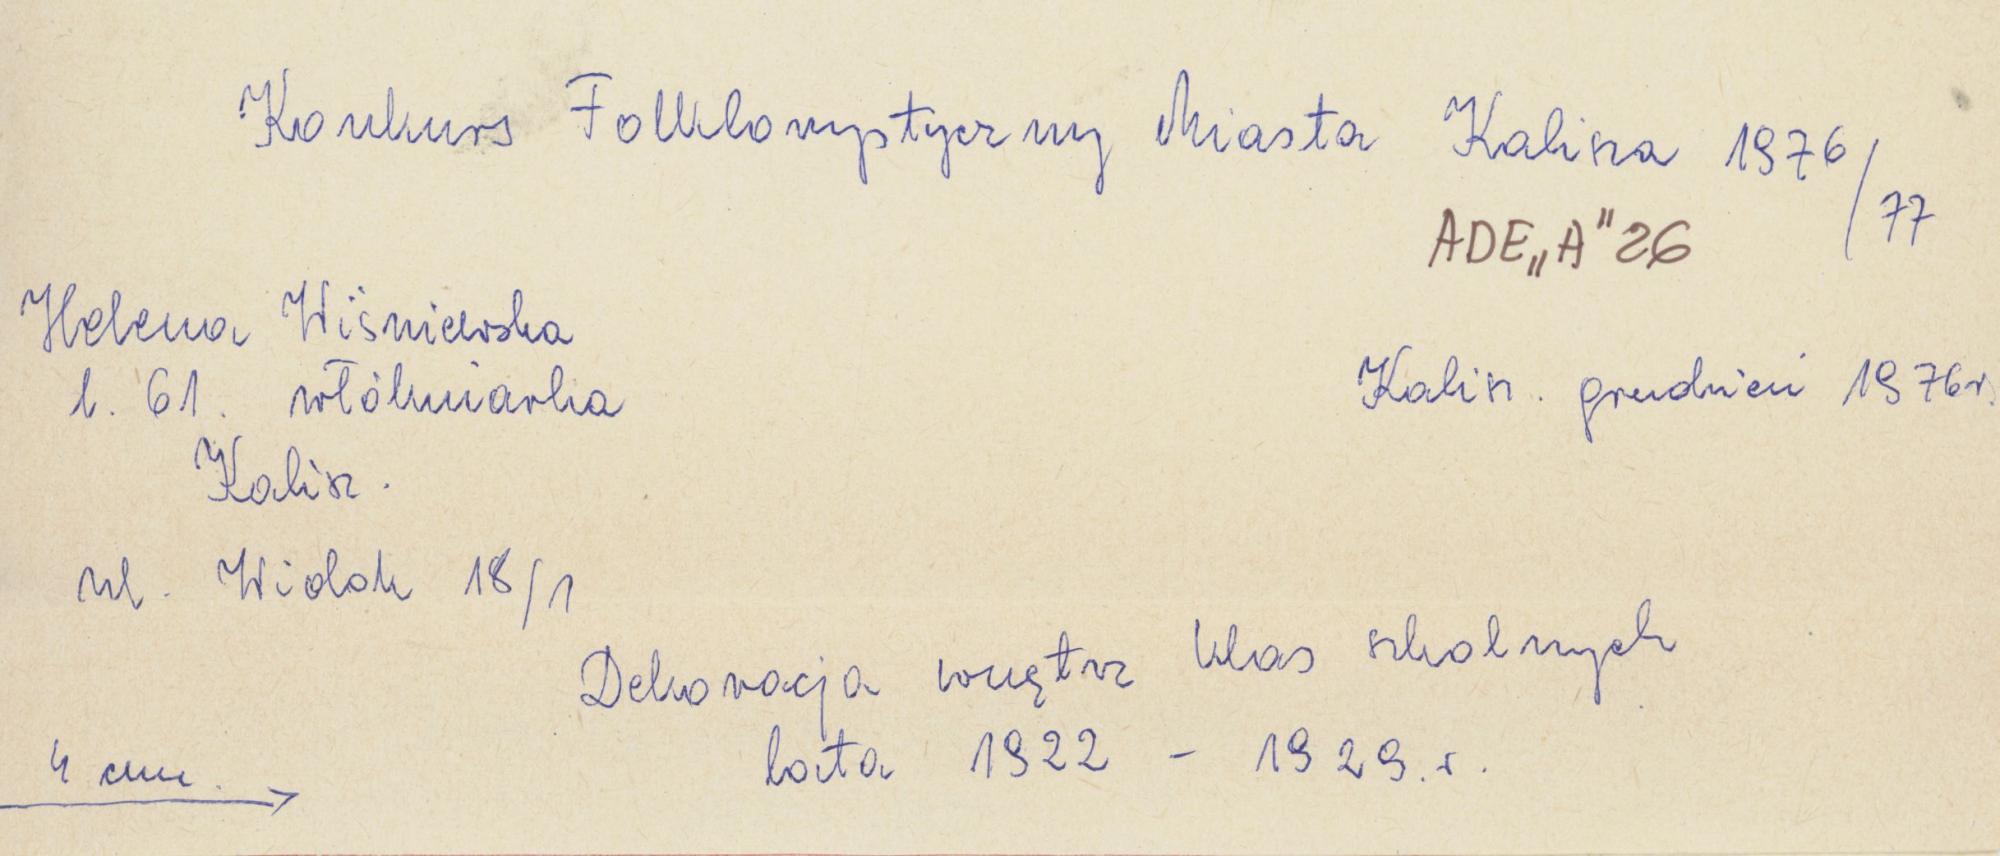 Konkurs Folklorystyczny Miasta Kalisza 1976/77
ADE „A” 26
Helena Wiśniewska
l. 61. włókniarka
Kalisz. grudzień 1976 r.
Kalisz.
ul. Widok 18/1
Dekoracja wnętrz klas szkolnych
lata 1922 - 1929. r.
4 cm.